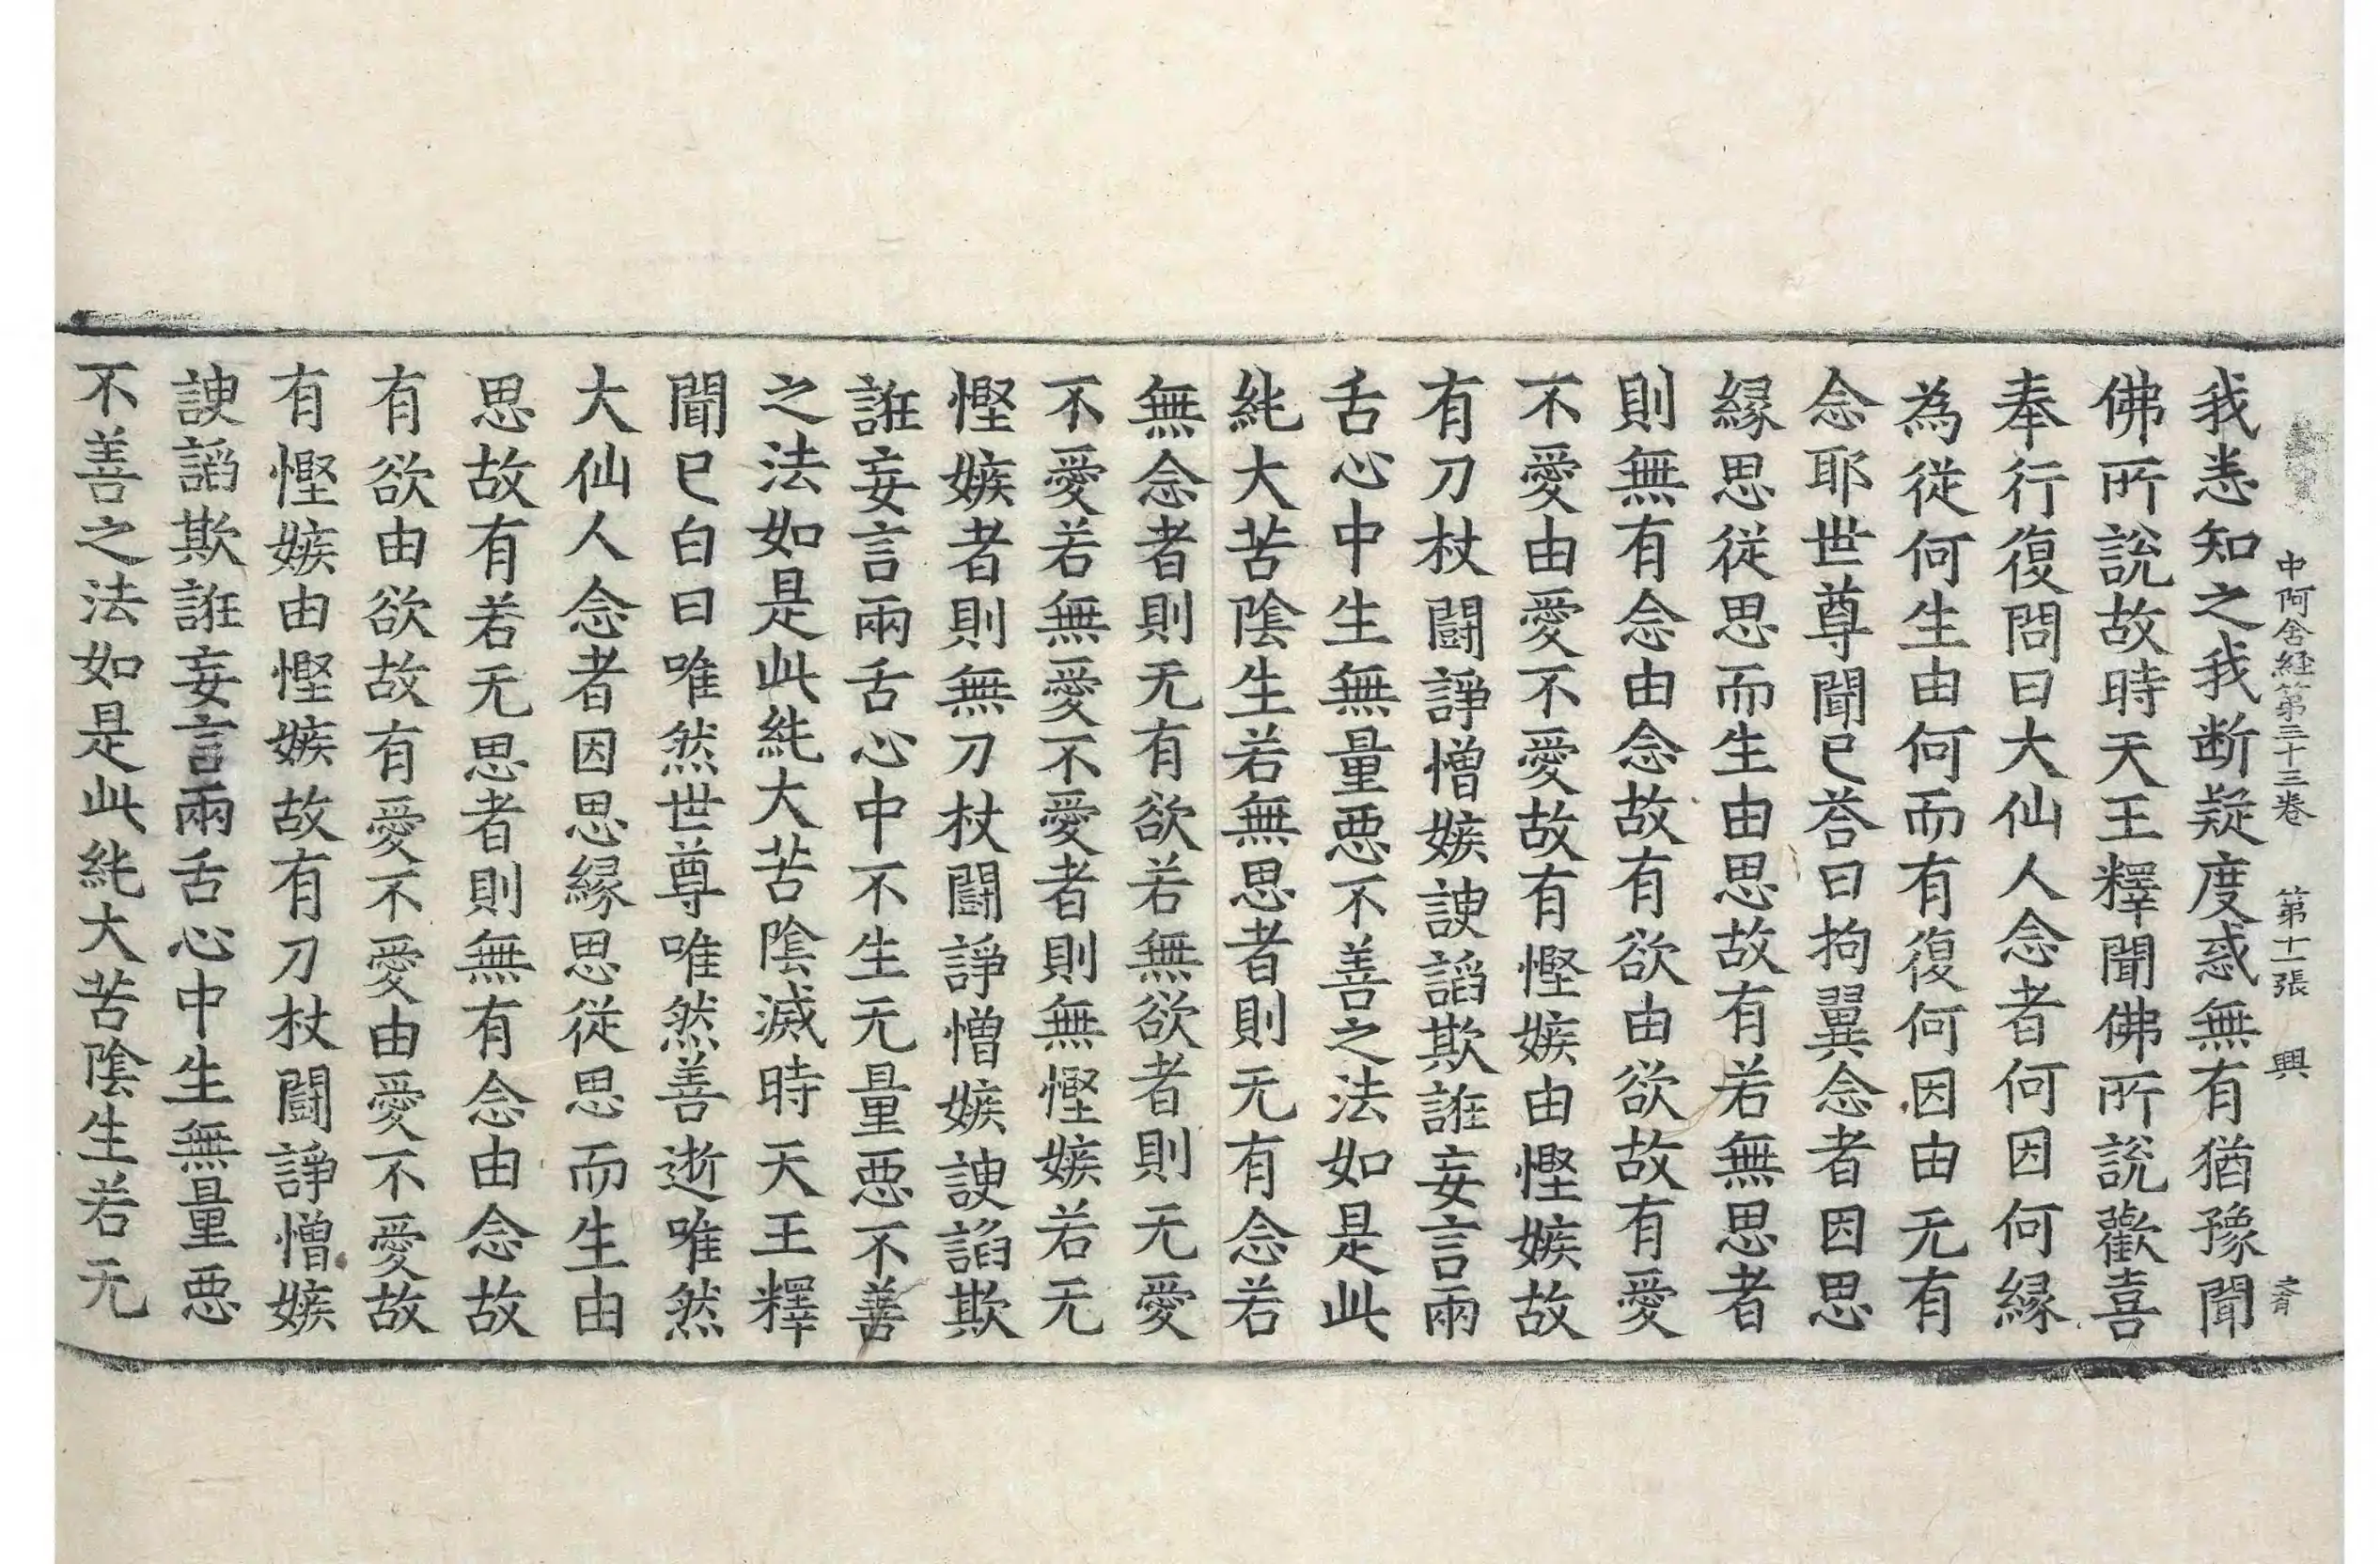 中阿含経第三十三卷 第十一張 興
我悉知之我断疑度惑無有猶豫聞
佛所說故時天王釋聞佛所說歡喜
奉行復問曰大仙人念者何因何縁
為從何生由何而有復何因由无有
念耶世尊聞已荅曰拘翼念者因思
縁思從思而生由思故有若無思者
則無有念由念故有欲由欲故有愛
不愛由愛不愛故有慳嫉由慳嫉故
有刀杖鬪諍憎嫉諛諂欺誑妄言兩
舌心中生無量惡不善之法如是此
純大苦陰生若無思者則无有念若
無念者則无有欲若無欲者則无愛
不愛若無愛不愛者則無慳嫉若无
慳嫉者則無刀杖鬪諍憎嫉諛諂欺
誑妄言兩舌心中不生无量惡不善
之法如是此純大苦陰滅時天王釋
聞已白曰唯然世尊唯然善逝唯然
大仙人念者因思縁思從思而生由
思故有若无思者則無有念由念故
有欲由欲故有愛不愛由愛不愛故
有慳嫉由慳嫉故有刀杖鬪諍憎嫉
諛諂欺誑妄言兩舌心中生無量惡
不善之法如是此純大苦陰生若无